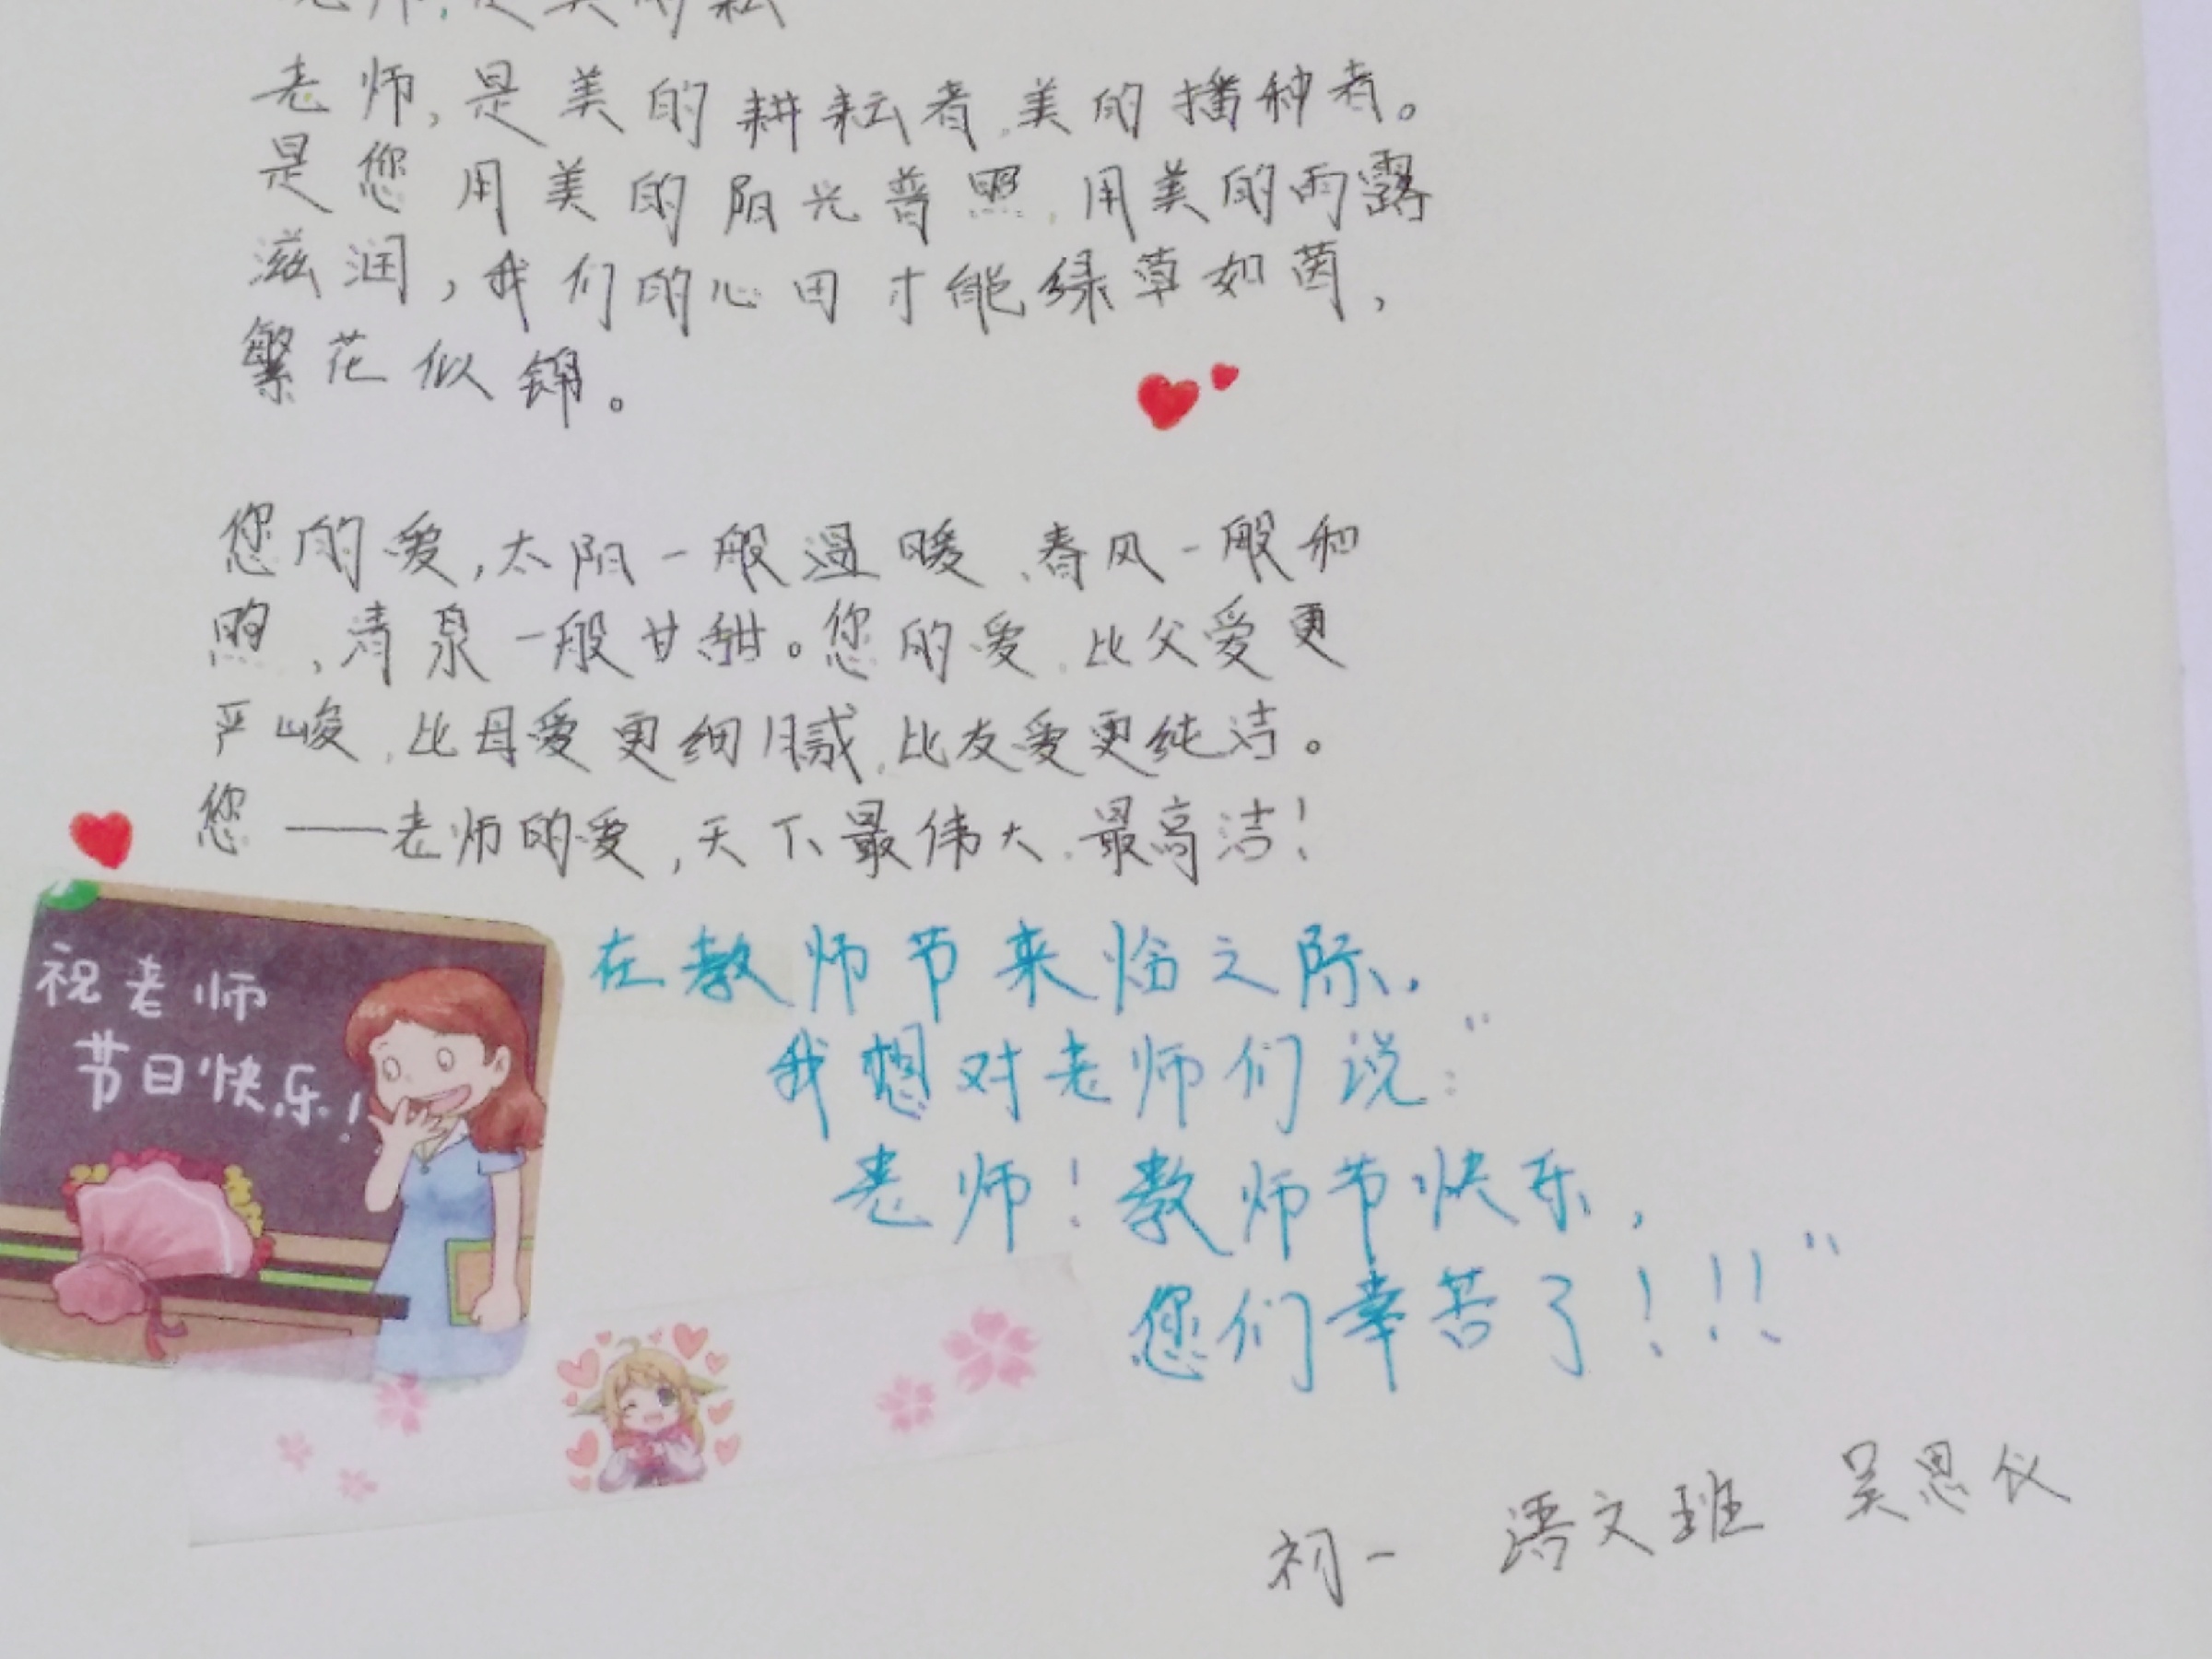 老师,是美的耘
老师,是美的耕耘者,美的播种者。
是您用美的阳光普照,用美的雨露
滋润,我们的心田才能绿草如茵,
繁花似锦。
您的爱,太阳一般温暖,春风一般和
煦,清泉一般甘甜。您的爱,比父爱更
严峻,比母爱更细腻,比友爱更纯洁。
您——老师的爱,天下最伟大,最高洁!
祝老师
节日快乐!
在教师节来临之际,
我想对老师们说:“
老师!教师节快乐,
您们辛苦了!!!”
初一 语文班 吴思仪